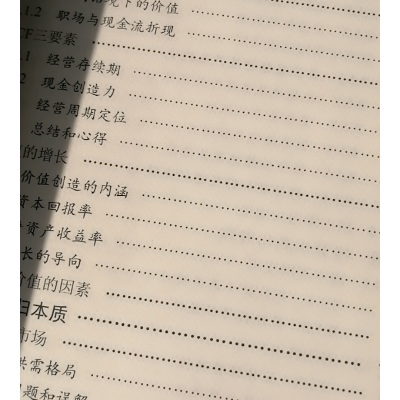 境下的价值
1.2 职场与现金流折现
CF三要素
.1 经营存续期
2 现金创造力
经营周期定位
总结和心得
的增长
价值创造的内涵
资本回报率
资产收益率
长的导向
价值的因素
归本质
市场
供需格局
问题和误解